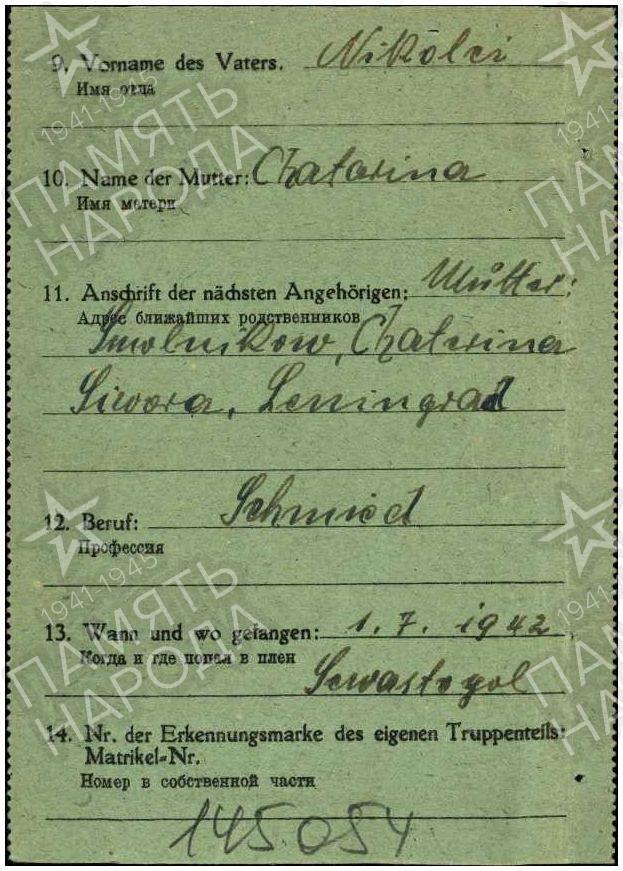 9. Vorname des Vaters. Nikolei
Имя отца
10. Name der Mutter: Chatarina
Имя матери
11. Anschrift der nächsten Angehörigen: Mutter:
Адрес ближайших родственников
Smolnikow, Chaterina
Siwora, Leningrad
12. Beruf: Schmied
Профессия
13. Wann und wo gefangen: 1. 7. 1942
Когда и где попал в плен
Sewastopol
14. Nr. der Erkennungsmarke des eigenen Truppenteils:
Matrikel-Nr.
Номер в собственной части
145054
1941-1945
ПАМЯТЬ
НАРОДА
1941-1945
ПАМЯТЬ
НАРОДА